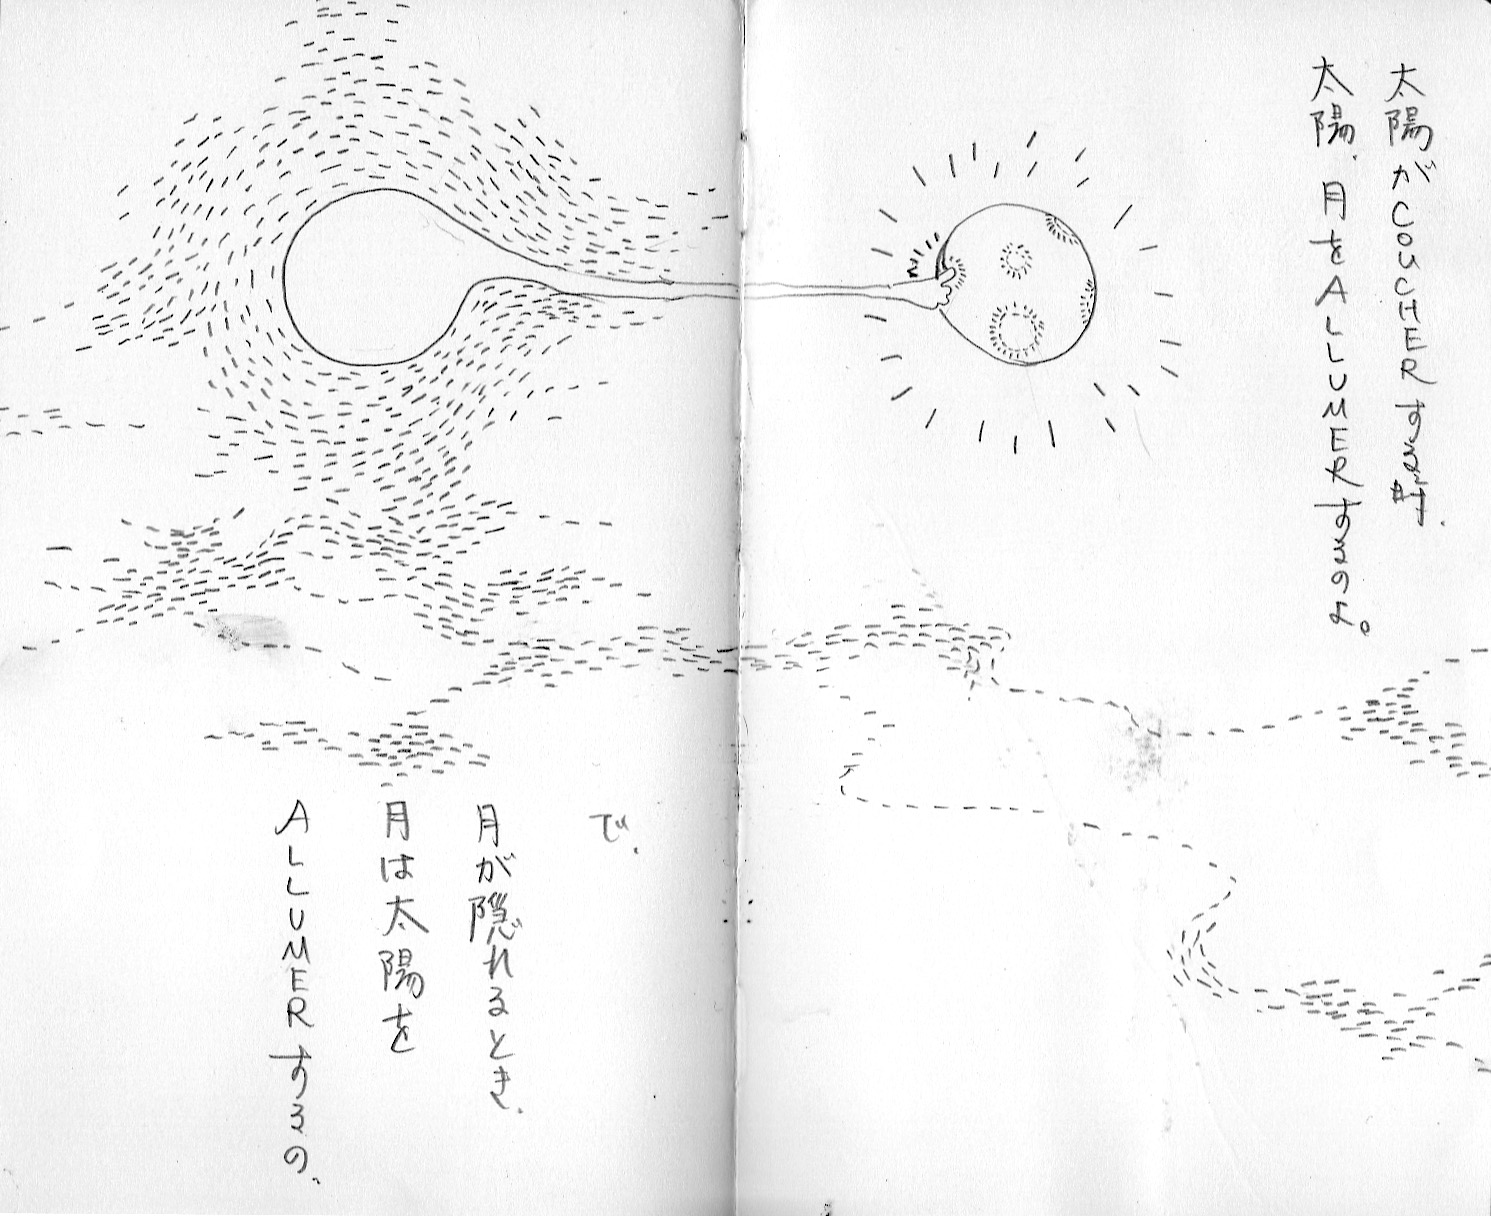 太陽がCOUCHERする時.
太陽.月をALLUMERするのよ。
で.
月が隠れるとき.
月は太陽を
ALLUMERするの.